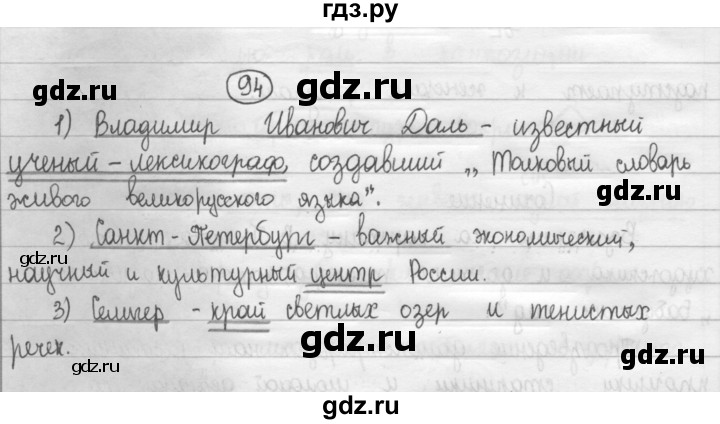 гдз.ру
gdz.ru
94
gdz.ru
gdz.ru
1) Владимир Иванович Даль - известный
ученый - лексикограф, создавший „Толковый словарь
живого великорусского языка".
gdz.ru
gdz.ru
2) Санкт-Петербург - важный экономический,
gdz.ru
научный и культурный центр России.
3) Селигер - край светлых озер и тенистых
речек.
gdz.ru
gdz.ru
gdz.ru
gdz.ru